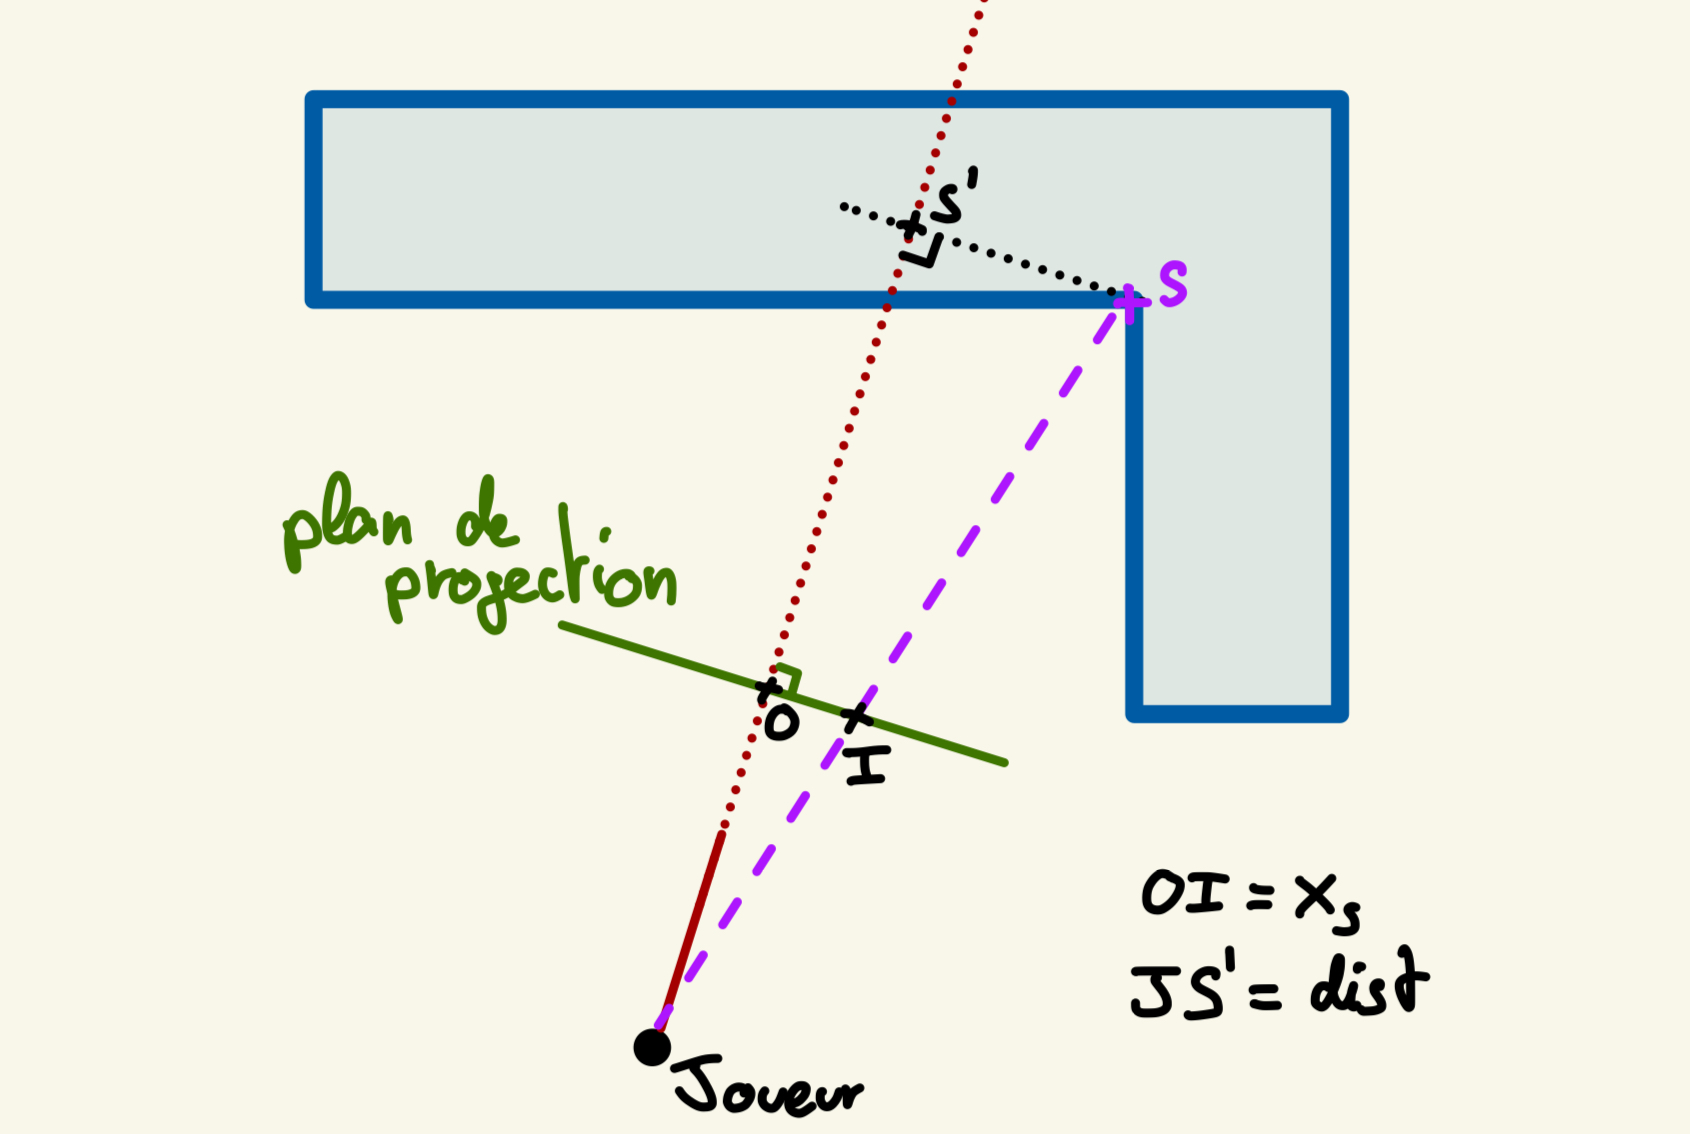 S'
S
plan de
projection
O
I
OI = xs
JS' = dist
Joueur